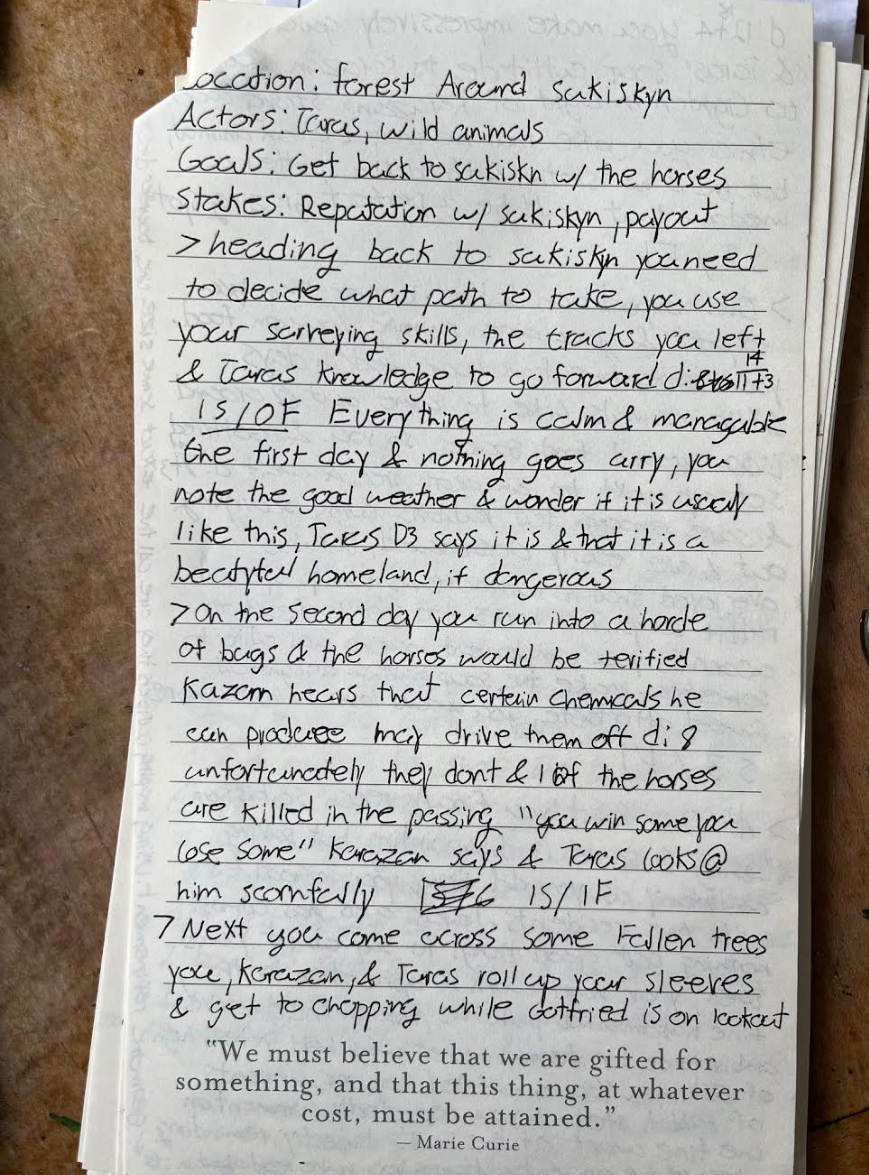 Location: Forest Around Sukiskyn
Actors: Taras, wild animals
Goals: Get back to sukiskn w/ the horses
Stakes: Reputation w/ sukiskyn, payout
> heading back to sukiskyn you need
to decide what path to take, you use
your surveying skills, the tracks you left
& Taras knowledge to go forward d: 11+3
14
1S/0F Everything is calm & managable
the first day & nothing goes arry, you
note the good weather & wonder if it is usualy
like this, Taras D3 says it is & that it is a
homeland, if dangerous
> On the second day you run into a horde
of bugs & the horses would be terified
Kazarn hears that certain chemicals he
can produce may drive them off d: 8
unfortunately they dont & 1 of the horses
are killed in the passing "you win some you
lose some" Karazan says & Taras looks @
him scornfully 1S/1F
> Next you come across some Fallen trees
you, Karazan, & Taras roll up your sleeves
& get to chopping while Gotfried is on lookout
"We must believe that we are gifted for
something, and that this thing, at whatever
cost, must be attained."
— Marie Curie